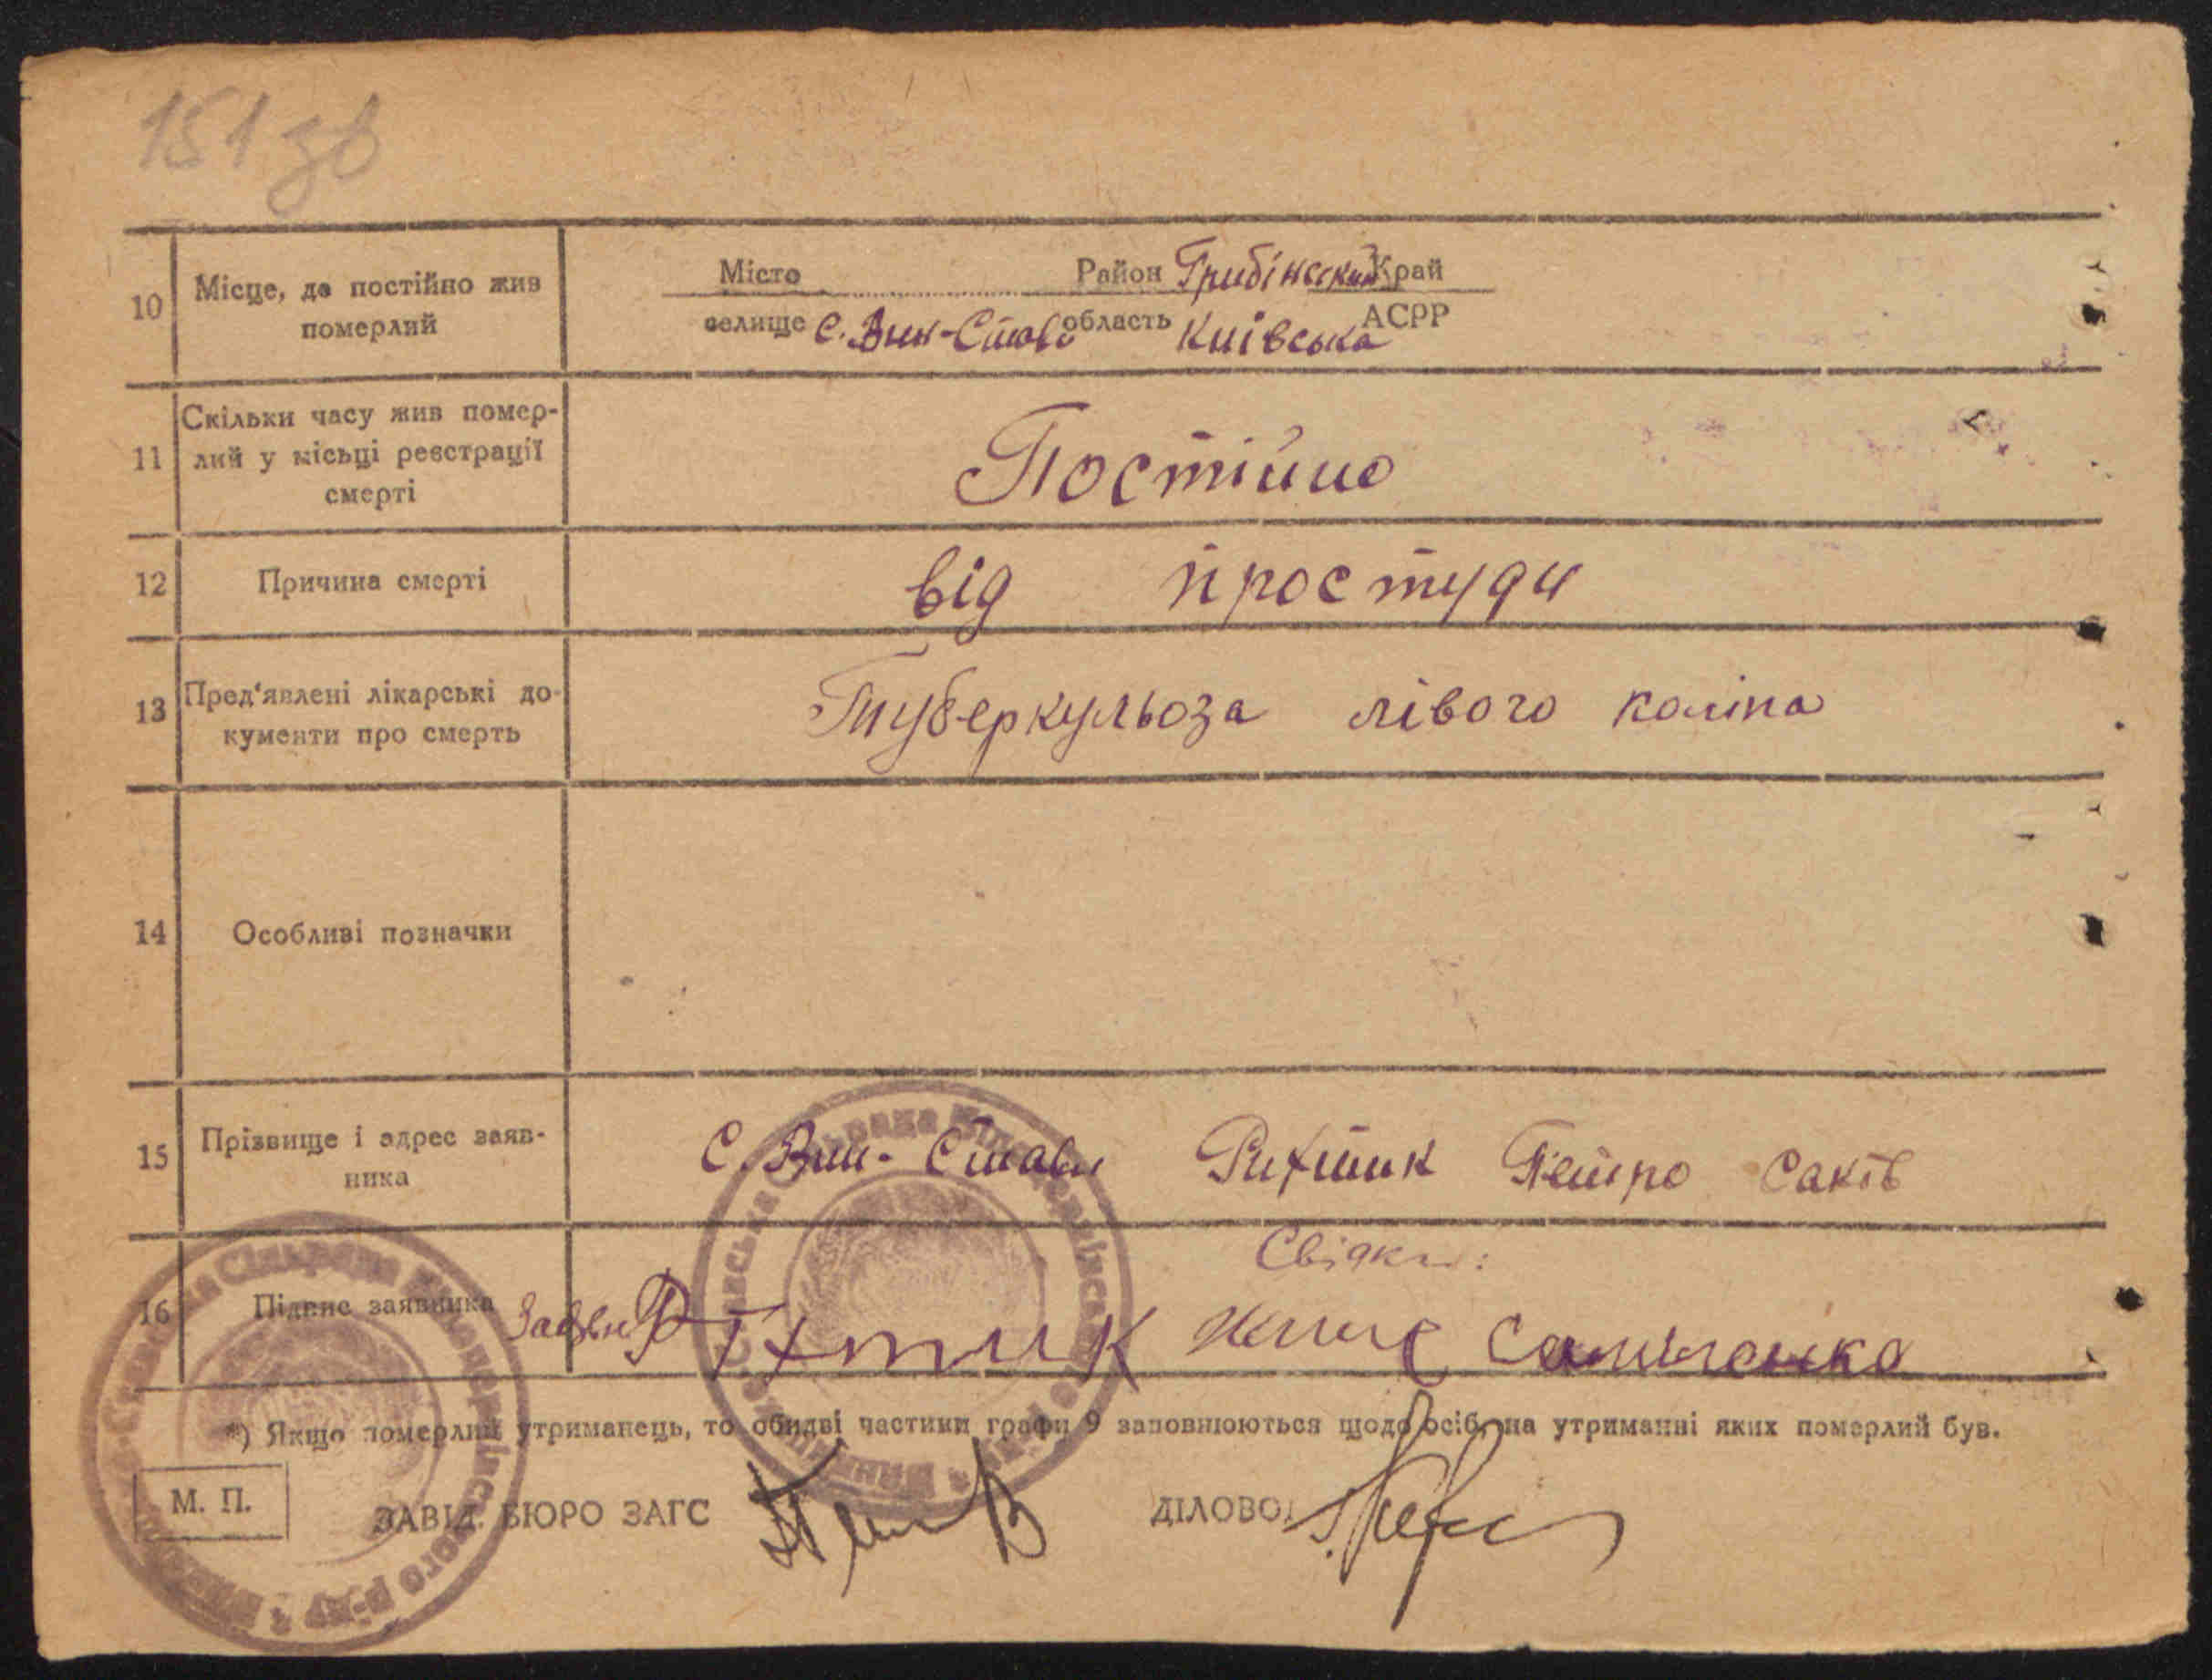 151 зв
10 Місце, де постійно жив померлий
Місто Район Грибінський Край
селище С. Вин-Стави область Київська АСРР
11 Скільки часу жив помер-
лий у місьці реєстрації
смерті
Постійно
12 Причина смерті
від простуди
13 Пред'явлені лікарські до-
кументи про смерть
Туберкульоза лівого коліна
14 Особливі позначки
15 Прізвище і адрес заяв-
ника
С. Вин-Стави Рихтик Петро Саків
Свідки:
16 Підпис заявника
*) Якщо померлий утриманець, то обидві частини графи 9 заповнюються щодо осіб, на утриманні яких померлий був.
М. П. ЗАВІД. БЮРО ЗАГС ДІЛОВОД